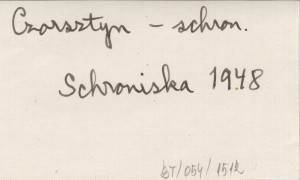 Czorsztyn – schron.
Schroniska 1948
BT/054/1512